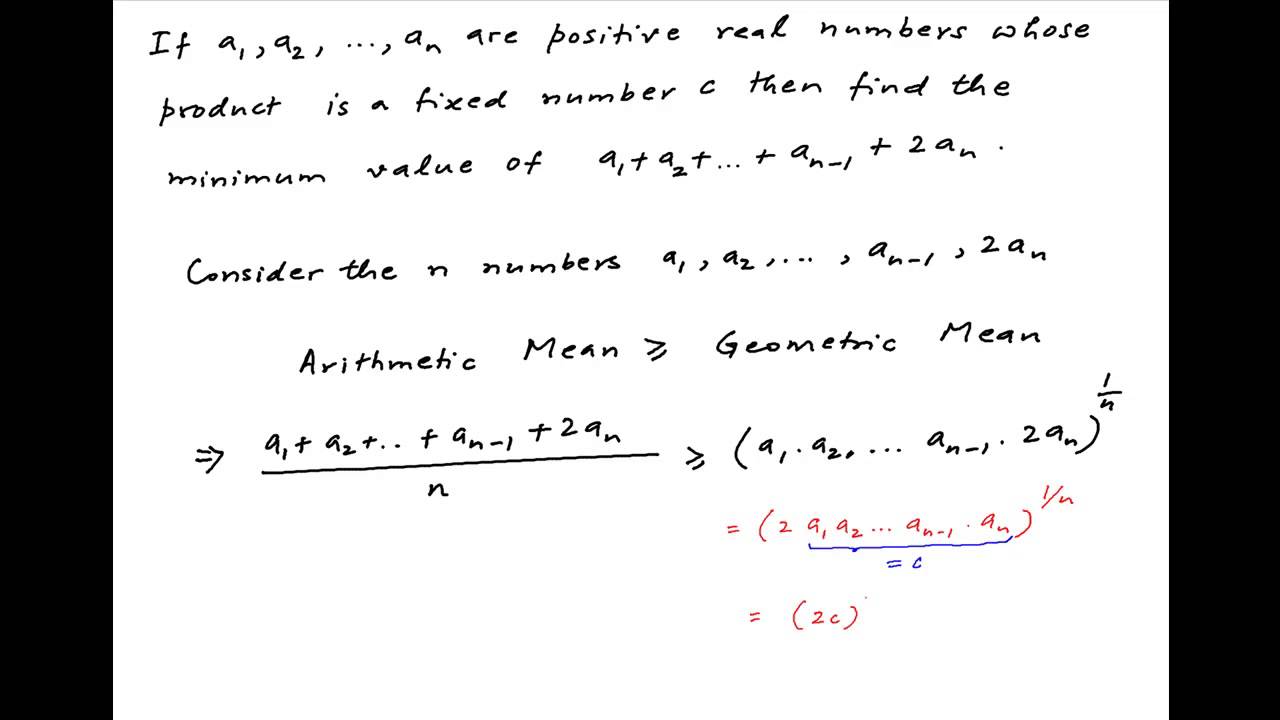 If a₁, a₂, ..., aₙ are positive real numbers whose
product is a fixed number c then find the
minimum value of a₁ + a₂ + ... + aₙ₋₁ + 2aₙ.
Consider the n numbers a₁, a₂, ..., aₙ₋₁, 2aₙ
Arithmetic Mean ≥ Geometric Mean
⇒ (a₁ + a₂ + .. + aₙ₋₁ + 2aₙ)/n ≥ (a₁ · a₂ ... aₙ₋₁ · 2aₙ)^(1/n)
= (2 a₁ a₂ ... aₙ₋₁ · aₙ)^(1/n)
= c
= (2c)